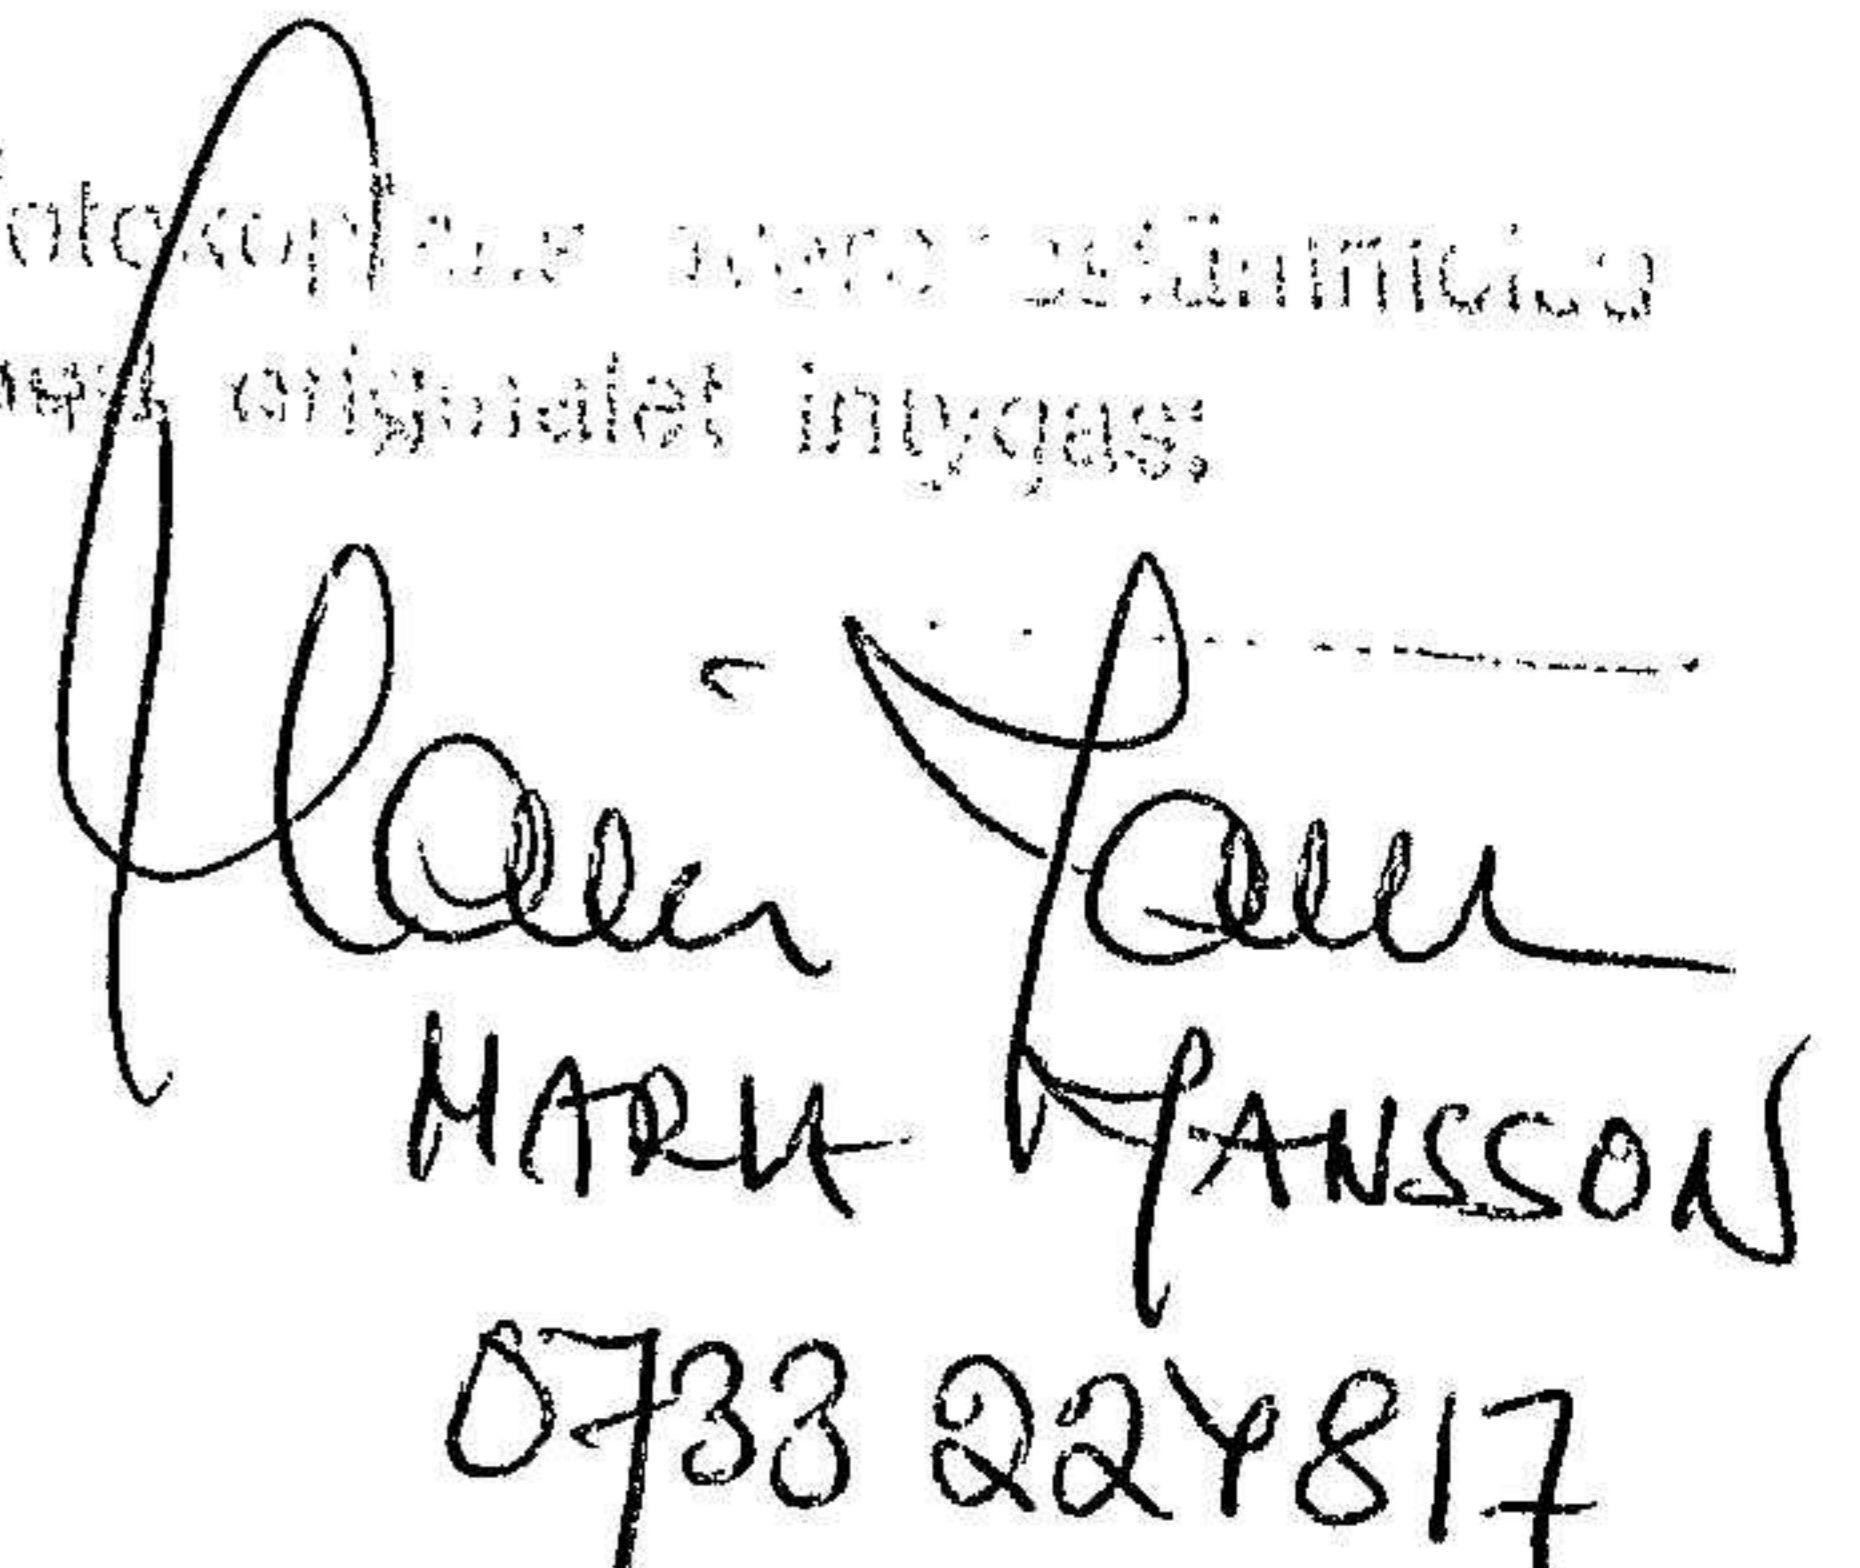 Fotokopians överensstämmelse
med originalet intygas;
MARK HANSSON
0733 224817